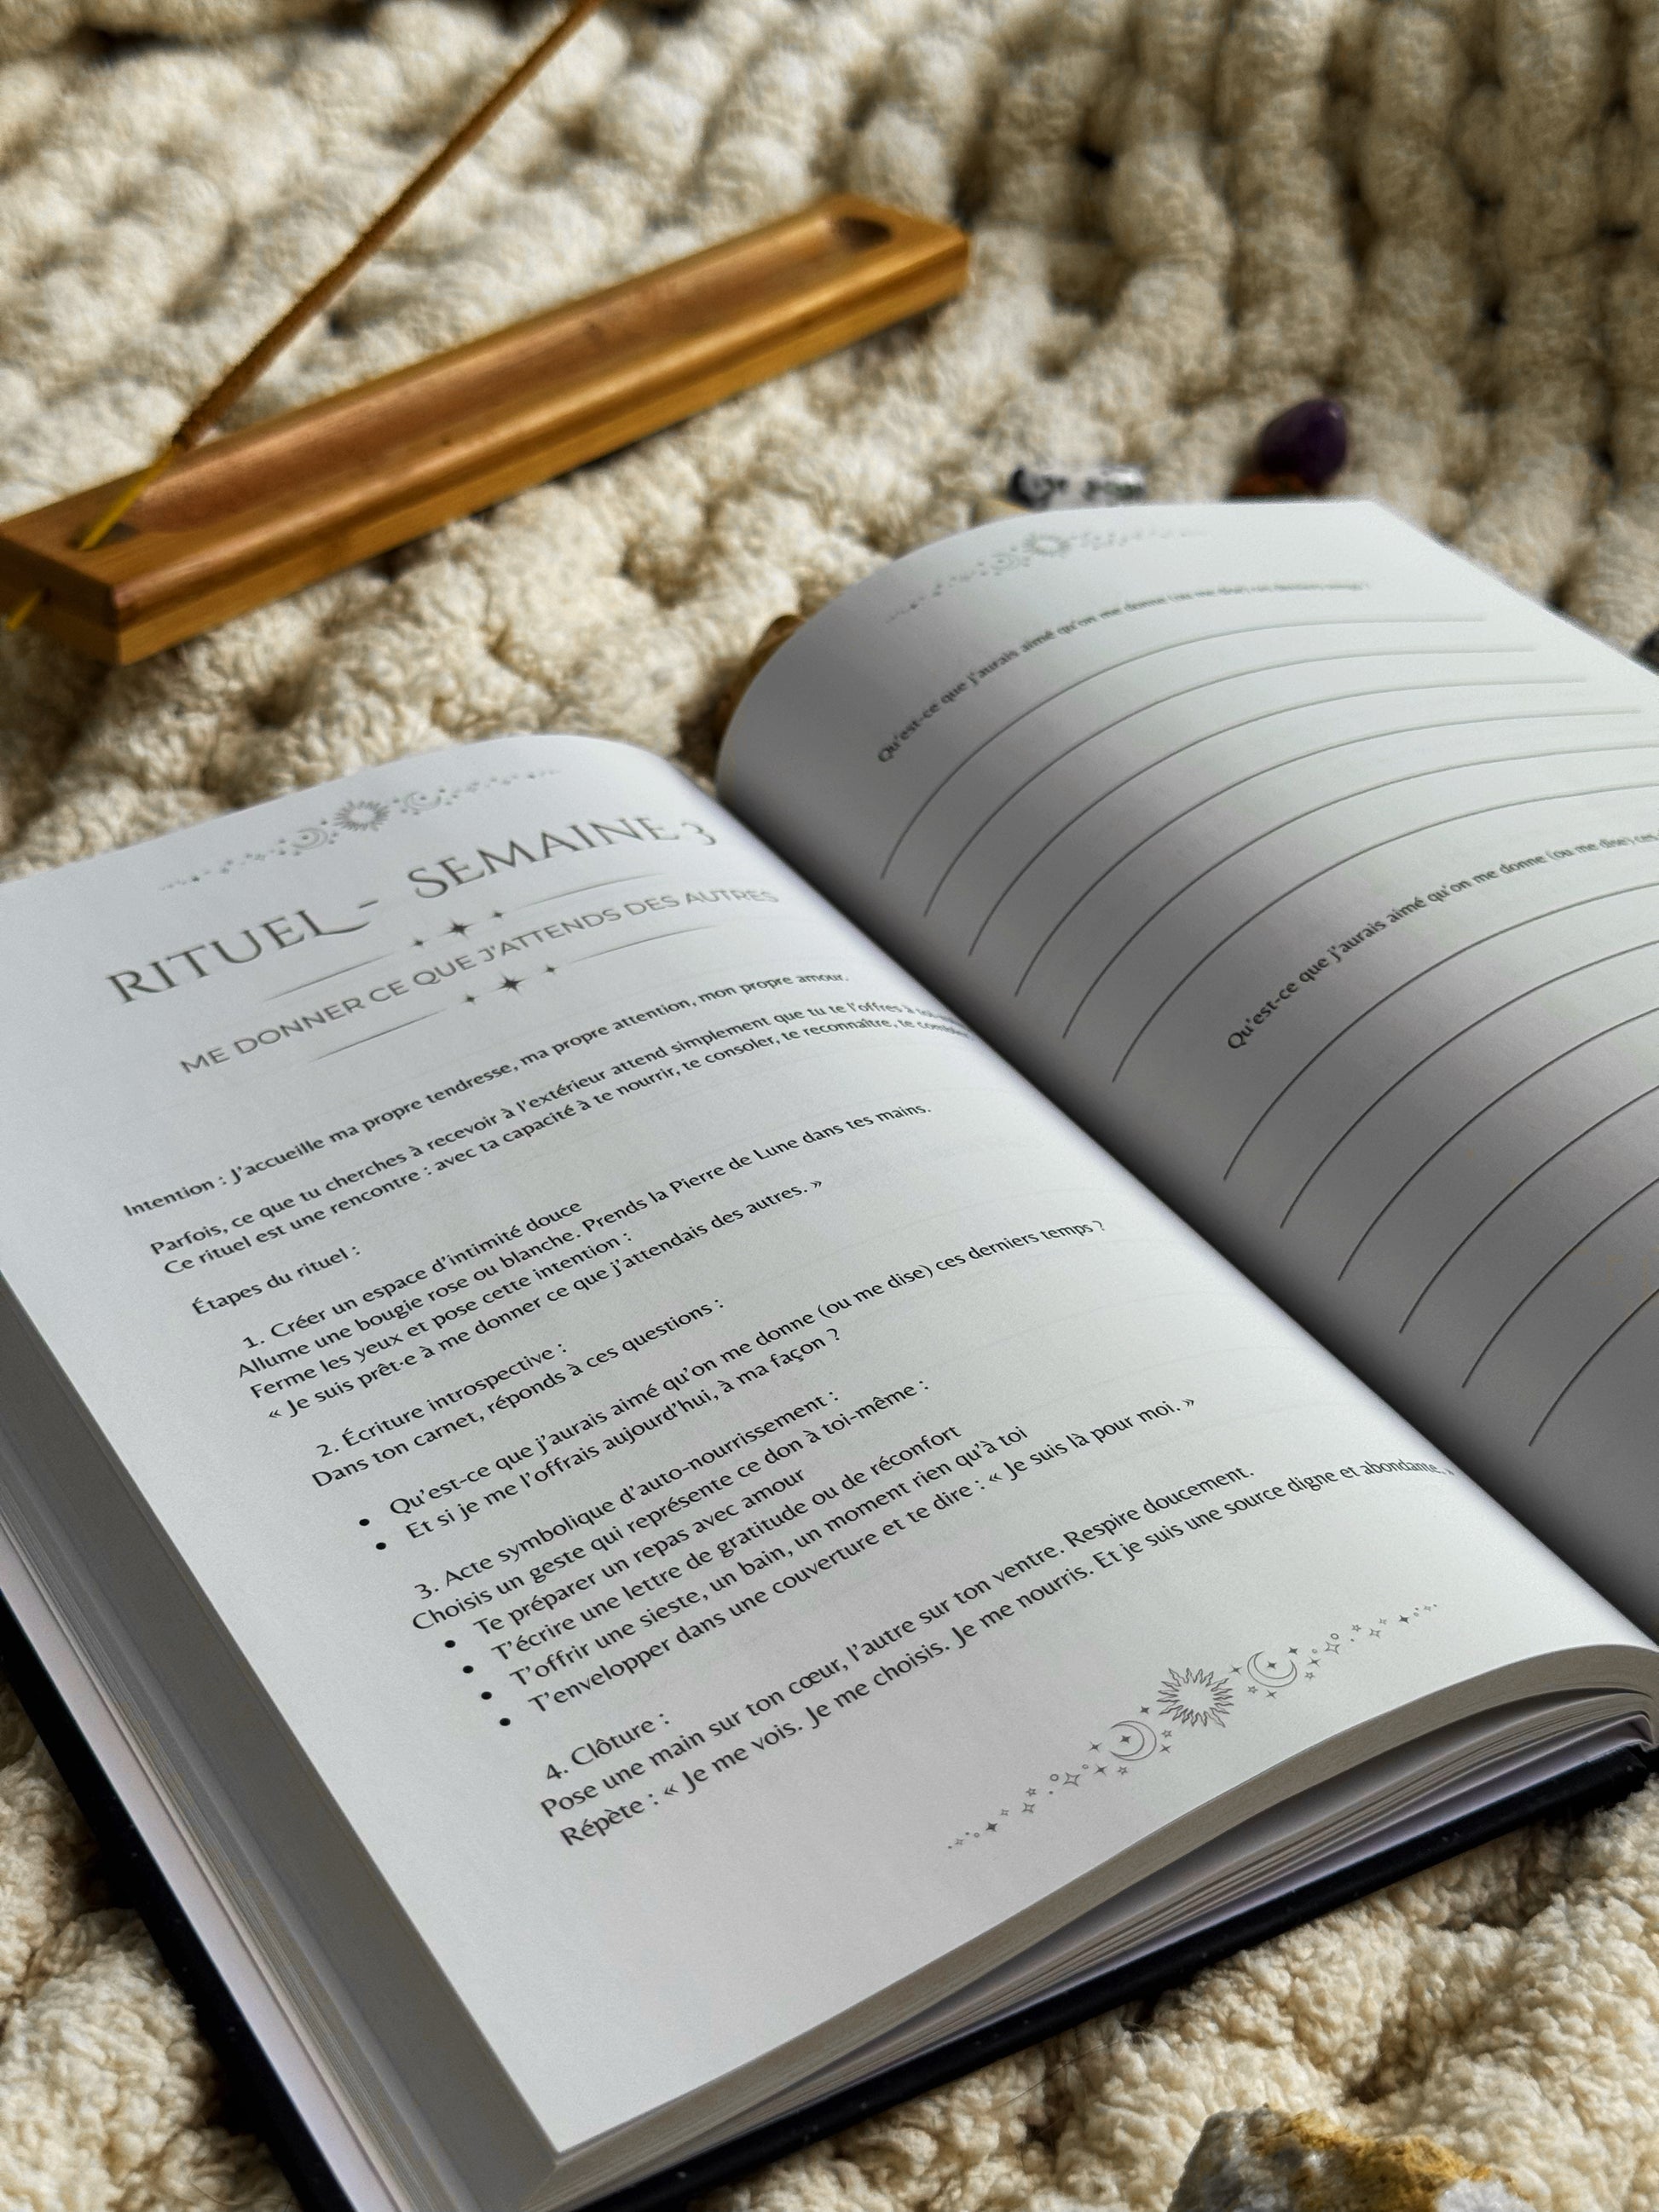 RITUEL - SEMAINE 3
ME DONNER CE QUE J'ATTENDS DES AUTRES
Intention : J'accueille ma propre tendresse, ma propre attention, mon propre amour.
Parfois, ce que tu cherches à recevoir à l'extérieur attend simplement que tu te l'offres à
Ce rituel est une rencontre : avec ta capacité à te nourrir, te consoler, te reconnaître, te
Étapes du rituel :
1. Créer un espace d'intimité douce
Allume une bougie rose ou blanche. Prends la Pierre de Lune dans tes mains.
Ferme les yeux et pose cette intention :
« Je suis prêt·e à me donner ce que j'attendais des autres. »
2. Écriture introspective :
Dans ton carnet, réponds à ces questions :
• Qu'est-ce que j'aurais aimé qu'on me donne (ou me dise) ces derniers temps ?
• Et si je me l'offrais aujourd'hui, à ma façon ?
3. Acte symbolique d'auto-nourrissement :
Choisis un geste qui représente ce don à toi-même :
• Te préparer un repas avec amour
• T'écrire une lettre de gratitude ou de réconfort
• T'offrir une sieste, un bain, un moment rien qu'à toi
• T'envelopper dans une couverture et te dire : « Je suis là pour moi. »
4. Clôture :
Pose une main sur ton cœur, l'autre sur ton ventre. Respire doucement.
Répète : « Je me vois. Je me choisis. Je me nourris. Et je suis une source digne et abondante. »
Qu'est-ce que j'aurais aimé qu'on me donne (ou me dise) ces derniers temps ?
Qu'est-ce que j'aurais aimé qu'on me donne (ou me dise) ces